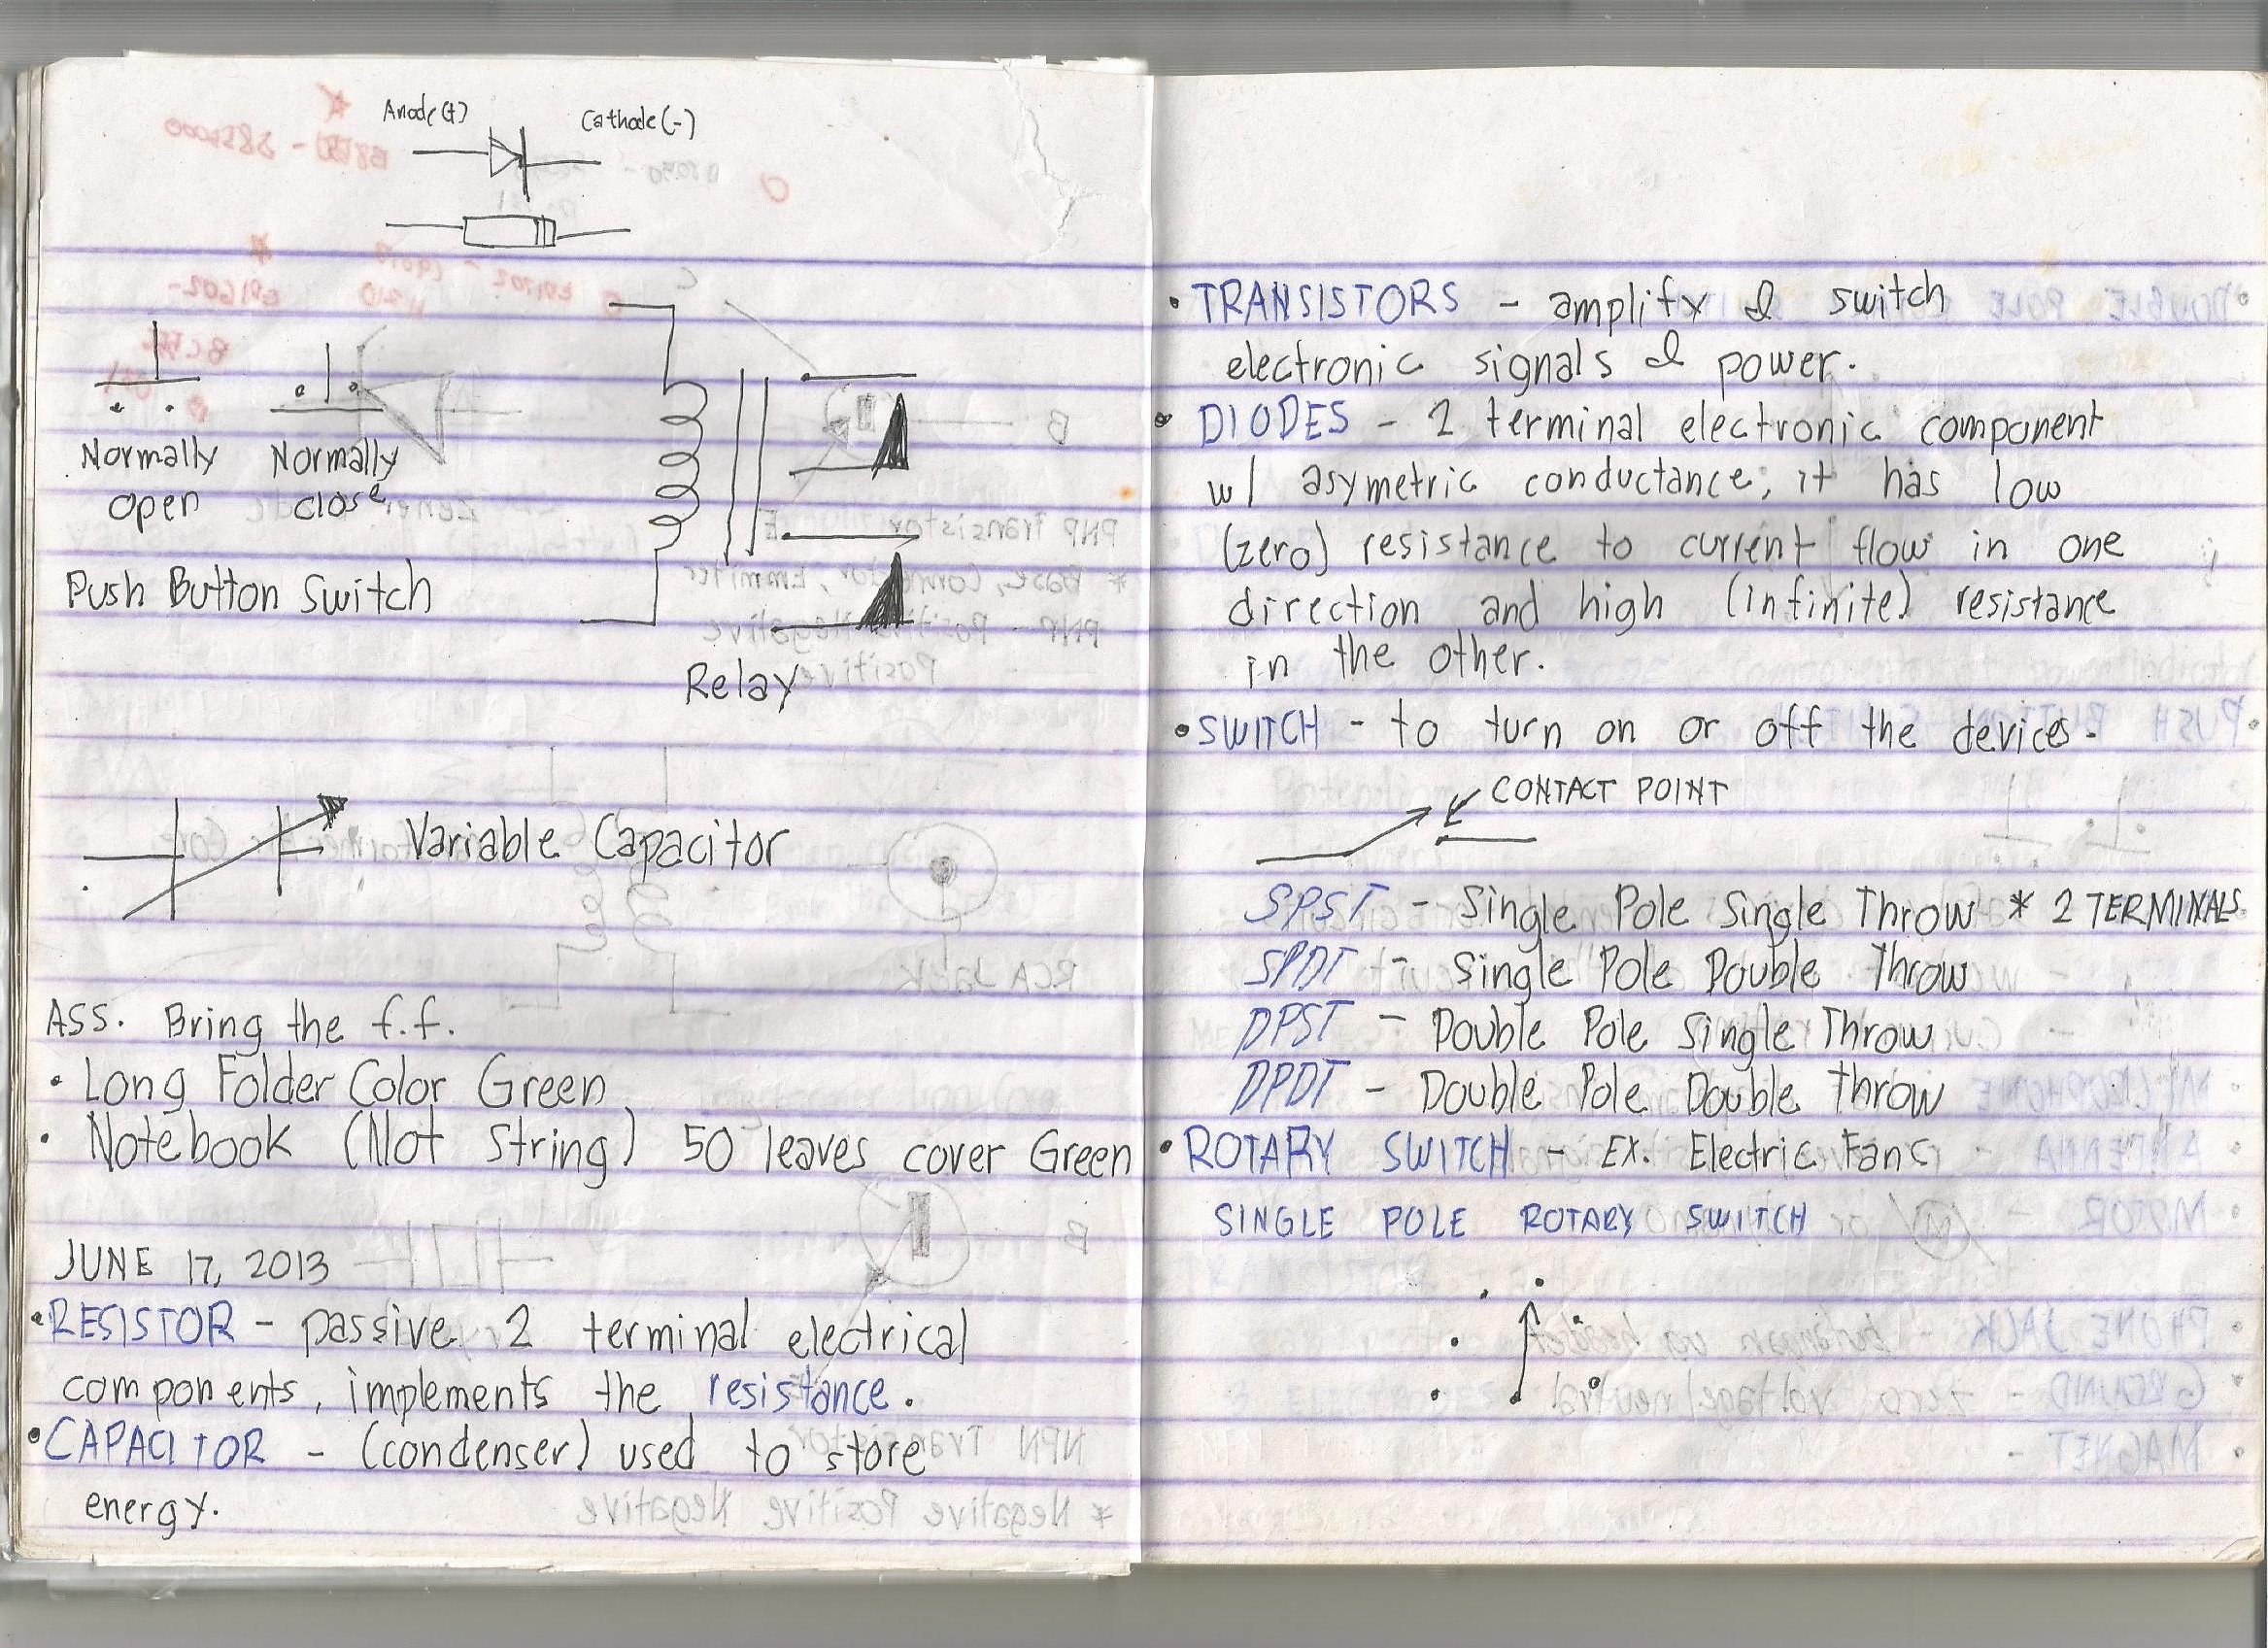 Anode(+) Cathode(-)
Normally open
Normally close
Push Button Switch
Relay
Variable Capacitor
ASS. Bring the f.f.
• Long Folder Color Green
• Notebook (Not String) 50 leaves cover Green
JUNE 17, 2013
• RESISTOR - passive 2 terminal electrical
components, implements the resistance.
• CAPACITOR - (condenser) used to store
energy.
• TRANSISTORS - amplify & switch
electronic signals & power.
• DIODES - 2 terminal electronic component
w/ asymetric conductance; it has low
(zero) resistance to current flow in one
direction and high (infinite) resistance
in the other.
• SWITCH - to turn on or off the devices.
CONTACT POINT
SPST - Single Pole Single Throw * 2 TERMINALS
SPDT - Single Pole Double Throw
DPST - Double Pole Single Throw
DPDT - Double Pole Double Throw
• ROTARY SWITCH - EX. Electric Fans
SINGLE POLE ROTARY SWITCH